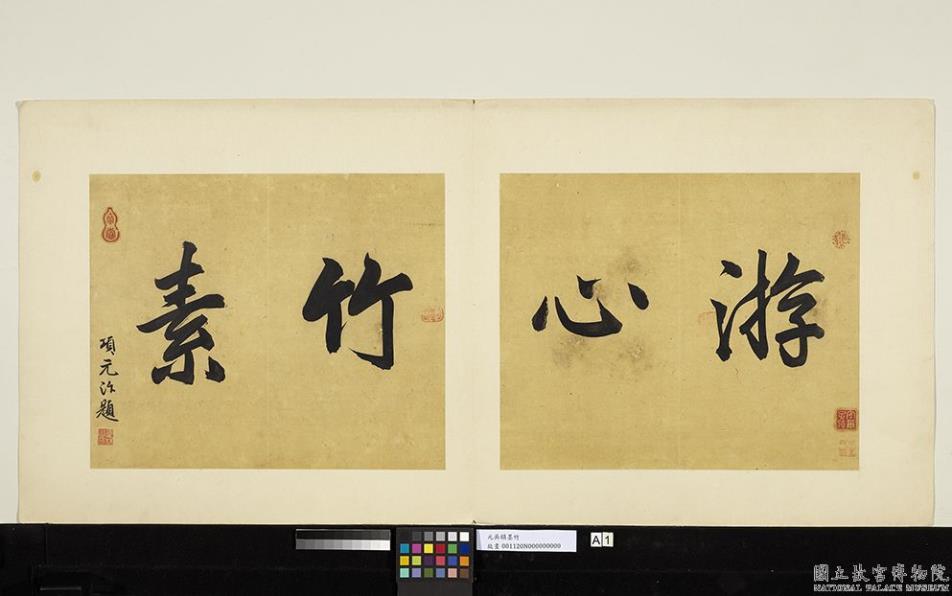 游心
竹素
項元汴題
元吳鎮墨竹
故畫 001120N000000000
A 1
國立故宮博物院
NATIONAL PALACE MUSEUM